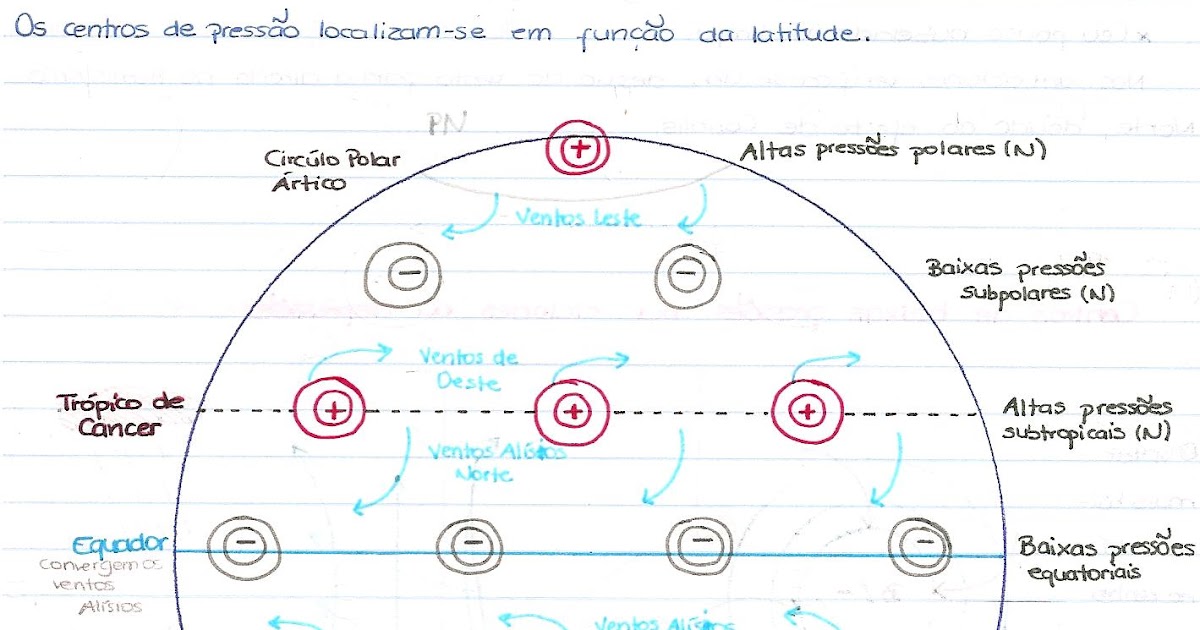 Os centros de pressão localizam-se em função da latitude.
PN
+
Circúlo Polar
Ártico
Altas pressões polares (N)
Ventos Leste
-
-
Baixas pressões
subpolares (N)
Ventos de
Oeste
Trópico de
Câncer
+
+
+
Altas pressões
subtropicais (N)
Ventos Alísios
Norte
Equador
-
-
-
-
Baixas pressões
equatoriais
Convergem os
ventos
Alísios
Ventos Alísios